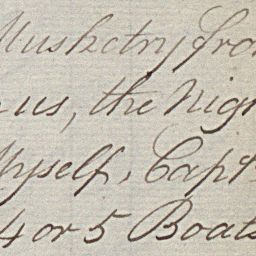 Musketry from
us, the Nigh
Myself, Capt
4 or 5 Boats